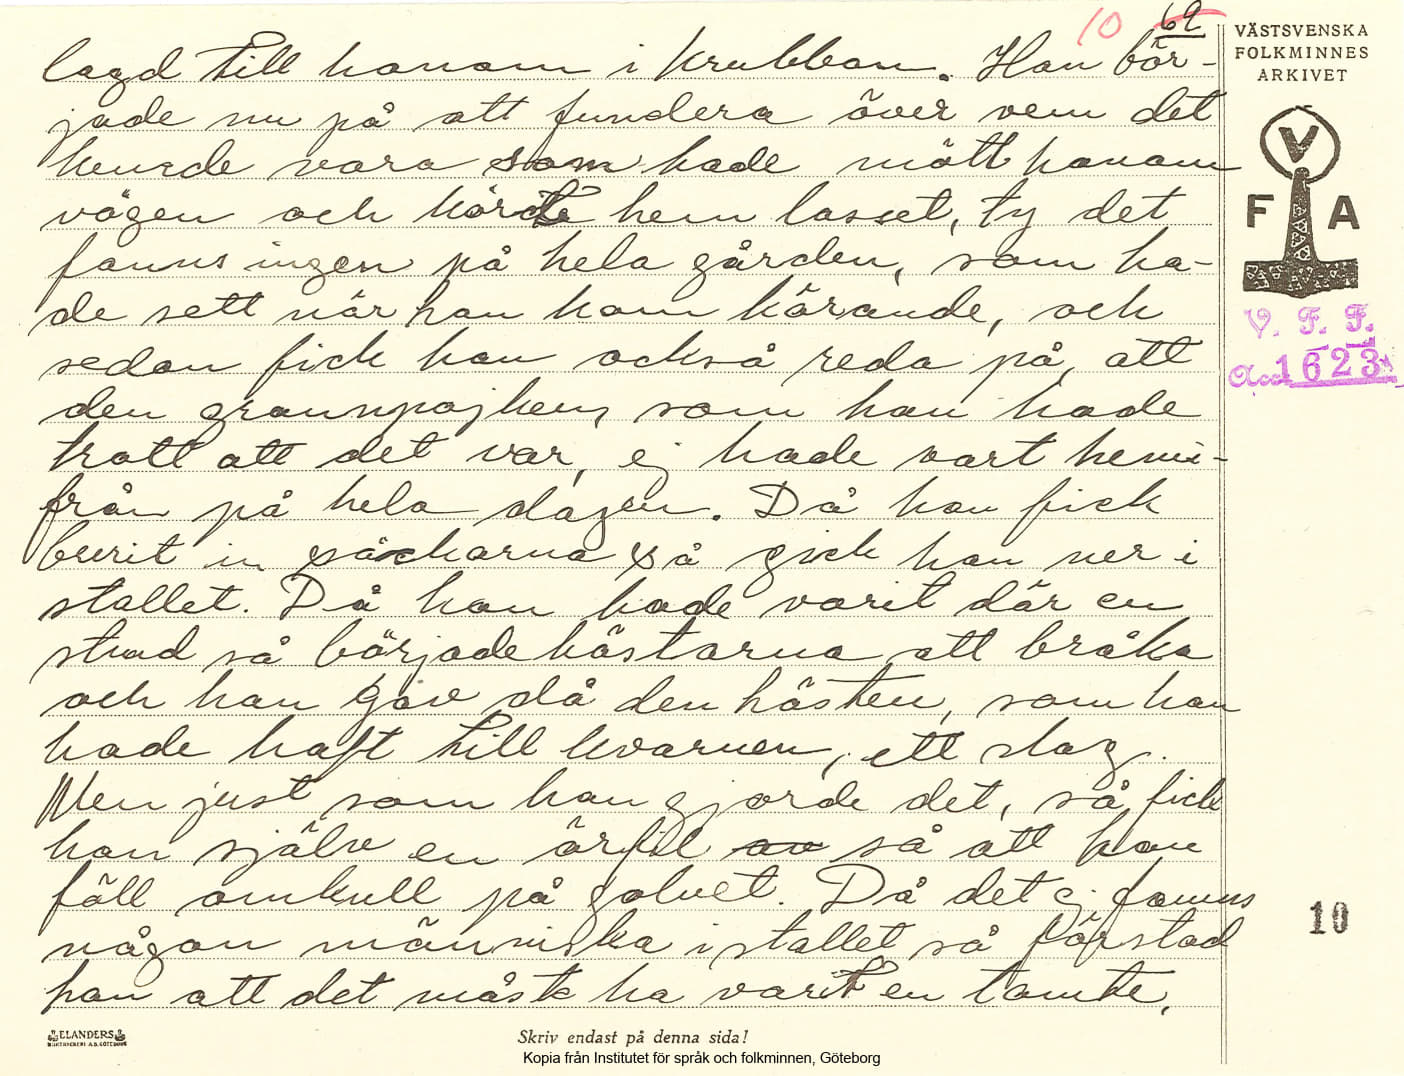 10 62
VÄSTSVENSKA
FOLKMINNES
ARKIVET
V
F A
V. F. F.
Acc 1623
lagd till honom i krubban. Han bör-
jade nu på att fundera över vem det
kunde vara som hade mött honom
vägen och körde hem lasset, ty det
fanns ingen på hela gården, som ha-
de sett när han kom körande, och
sedan fick han också reda på, att
den grannpojken, som han hade
trott att det var, ej hade vart hemi-
från på hela dagen. Då han fick
burit in säckarna så gick han ner i
stallet. Då han hade varit där en
stud så började hästarna att bråka
och han gav då den hästen, som han
hade haft till kvarnen, ett slag.
Men just som han gjorde det, så fick
han själv en örfil av så att han
föll omkull på golvet. Då det ej fanns
någon människa i stallet så förstod
han att det måste ha varit en tomte.
10
ELANDERS
BOKTRYCKERI A.B. GÖTEBORG
Skriv endast på denna sida!
Kopia från Institutet för språk och folkminnen, Göteborg